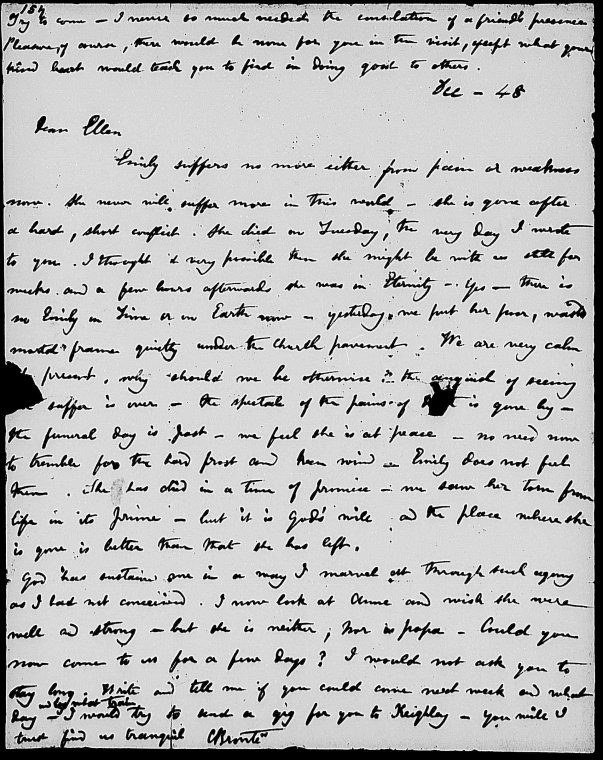 154
Try to come – I never so much needed the consolation of a friend's presence
Pleasure, of course, there would be none for you in the visit, except what your
kind heart would teach you to find in doing good to others.
Dec – 48
Dear Ellen
Emily suffers no more either from pain or weakness
now. She never will suffer more in this world – she is gone after
a hard, short conflict. She died on Tuesday, the very day I wrote
to you. I thought it very possible then she might be with us still for
weeks and a few hours afterwards she was in Eternity – Yes – there is
no Emily in Time or on Earth now – yesterday, we put her poor, wasted
mortal frame quietly under the Church pavement. We are very calm
at present, why should we be otherwise? – the anguish of seeing
suffer is over – the spectacle of the pains of is gone by –
the funeral day is past – we feel she is at peace – no need now
to tremble for the hard frost and keen wind – Emily does not feel
them. She has died in a time of promise – we saw her torn from
life in its prime – but it is God's will, and the place where she
is gone is better than that she has left.
God has sustained me in a way I marvel at through such agony
as I had not conceived. I now look at Anne and wish she were
well and strong – but she is neither, nor is papa – Could you
now come to us for a few days? I would not ask you to
stay long. Write and tell me if you could come next week and what
and by what train
day – I would try to send a gig for you to Keighley – you will I
trust find us tranquil CBrontë